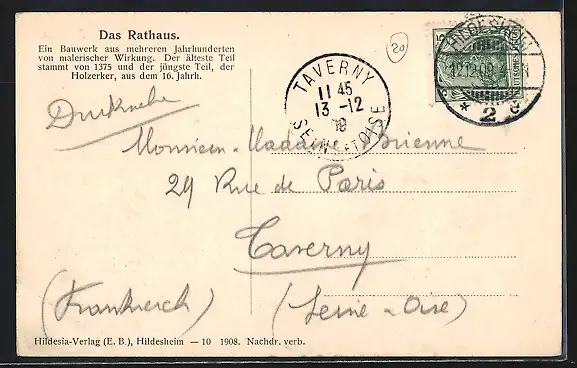 Das Rathaus.
Ein Bauwerk aus mehreren Jahrhunderten
von malerischer Wirkung. Der älteste Teil
stammt von 1375 und der jüngste Teil, der
Holzerker, aus dem 16. Jahrh.
20
HILDESHEIM
12.12.08.
* 2 c
TAVERNY
11 45
13 -12
SEINE ET OISE
Drucksache
Monsieur-Madame Brienne
29 Rue de Paris
Taverny
(Frankreich) (Seine-Oise)
Hildesia-Verlag (E. B.), Hildesheim — 10 1908. Nachdr. verb.